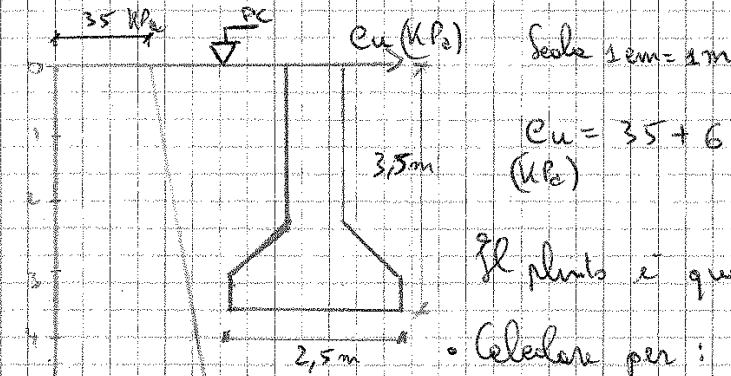 35 KPa
PC
Cu (KPa)
Scala 1 cm = 1 m
0
1
2
3
4
3,5 m
Cu = 35 + 6
(KPa)
Il plinto è que
2,5 m
• Calcolare per :